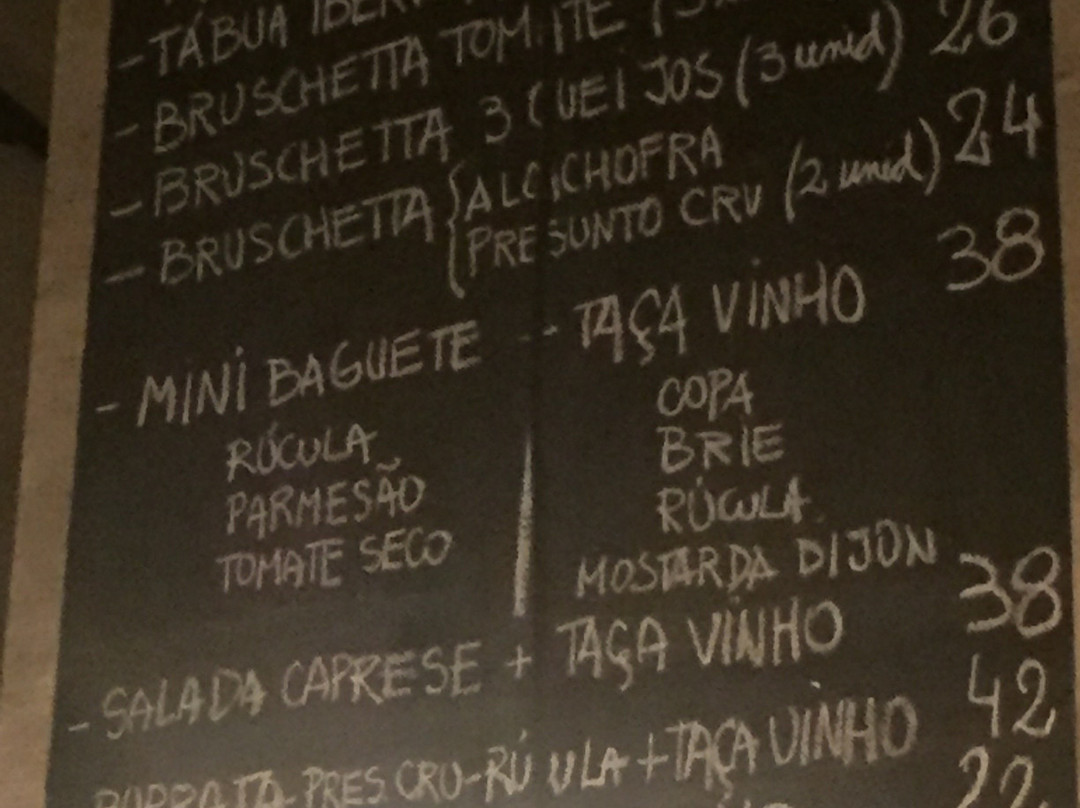 - TÁBUA
- BRUSCHETTA TOMATE
- BRUSCHETTA 3 QUEIJOS (3 unid) 26
- BRUSCHETTA { ALCACHOFRA
PRESUNTO CRU (2 unid) 24
- MINI BAGUETE -- TAÇA VINHO 38
RÚCULA
PARMESÃO
TOMATE SECO
COPA
BRIE
RÚCULA
MOSTARDA DIJON
- SALADA CAPRESE + TAÇA VINHO 38
BURRATA-PRES CRU-RÚCULA+TAÇA VINHO 42
22